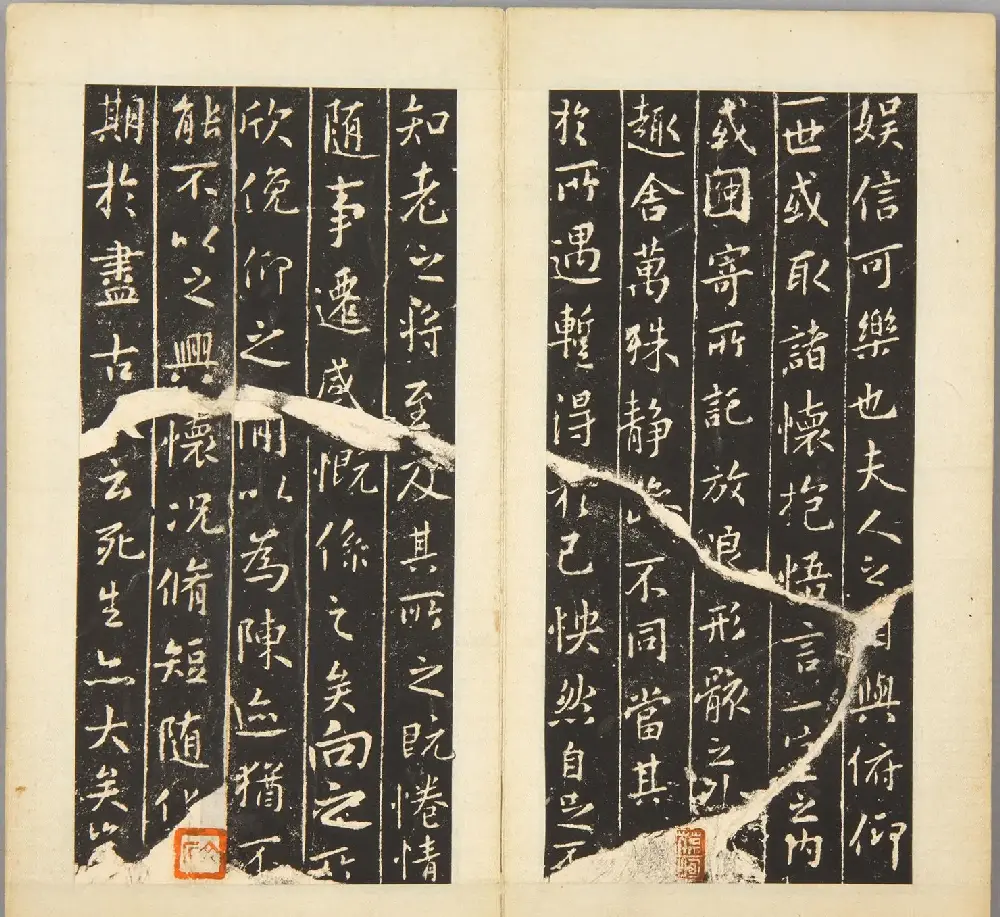 娛信可樂也夫人之相與俯仰
一世或取諸懷抱悟言一室之内
或因寄所託放浪形骸之外
趣舍萬殊靜躁不同當其
於所遇蹔得於己怏然自足不
知老之將至及其所之既惓情
隨事遷感慨係之矣向之所
欣俛仰之間以為陳迹猶不
能不以之興懷況脩短隨化
期於盡古人云死生亦大矣豈